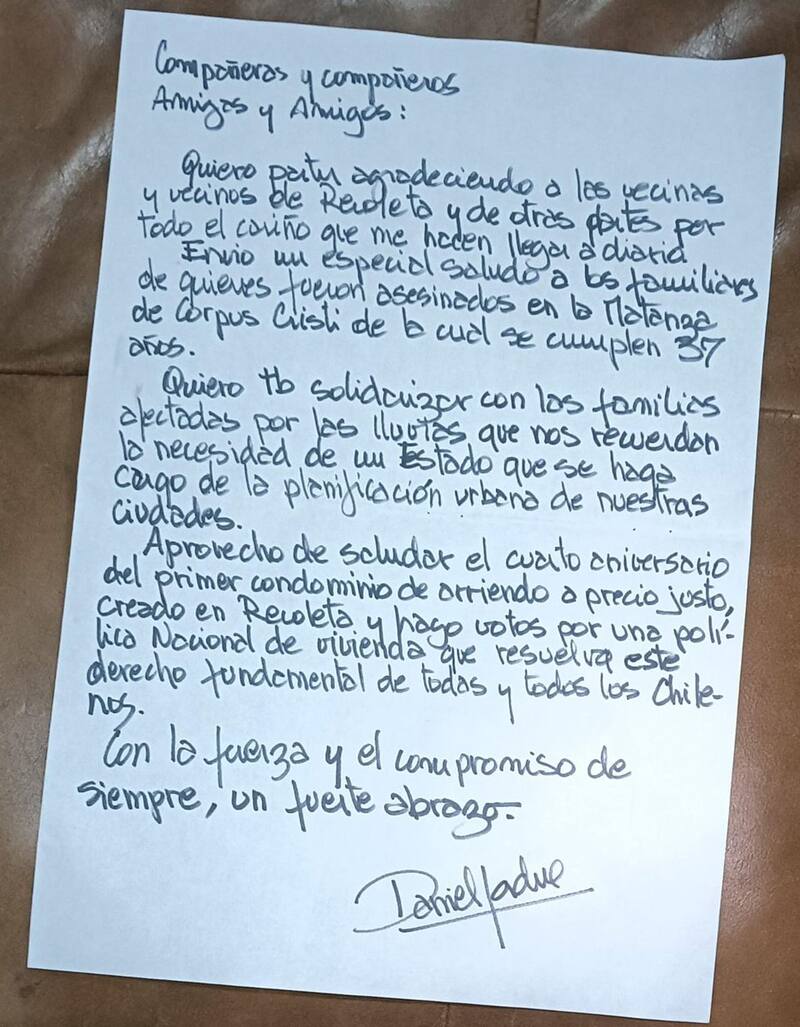 Compañeras y compañeros
Amigas y Amigos:
Quiero partir agradeciendo a las vecinas
y vecinos de Recoleta y de otras partes por
todo el cariño que me hacen llegar a diario
Envío un especial saludo a los familiares
de quienes fueron asesinados en la Matanza
de Corpus Cristi de la cual se cumplen 37
años.
Quiero tb solidarizar con las familias
afectadas por las lluvias, que nos recuerdan
la necesidad de un Estado que se haga
cargo de la planificación urbana de nuestras
ciudades.
Aprovecho de saludar el cuarto aniversario
del primer condominio de arriendo a precio justo,
creado en Recoleta y hago votos por una polí-
tica Nacional de vivienda que resuelva este
derecho fundamental de todas y todos los Chile-
nos.
Con la fuerza y el compromiso de
siempre, un fuerte abrazo.
Daniel Jadue